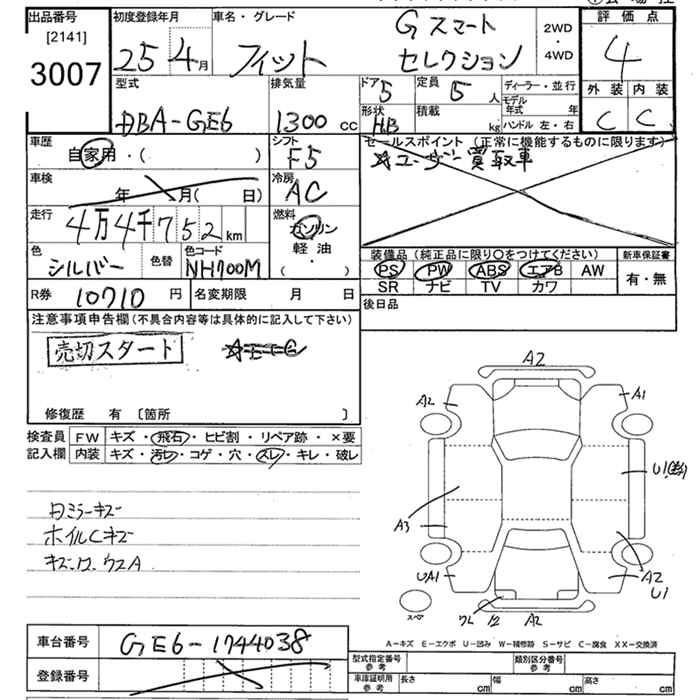 出品番号
[2141]
3007
初度登録年月
25 4月
車名・グレード
フィット
Gスマート
セレクション
2WD
・
4WD
評価点
4
外装 内装
C C
型式
DBA-GE6
排気量
1300 cc
ドア
5
定員
5 人
形状
HB
積載
kg
ディーラー・並行
モデル年式 年
ハンドル 左・右
車歴
自家用・( )
シフト
F5
セールスポイント (正常に機能するものに限ります)
☆ユーザー買取車
車検
年 月( 日)
冷房
AC
走行
4万4千752km
燃料
ガソリン
軽油
・( )
色
シルバー
色替
色コード
NH700M
装備品(純正品に限り○をつけてください)
PS PW ABS エアB AW
SR ナビ TV カワ
新車保証書
有・無
R券 10710 円
名変期限 月 日
後日品
注意事項申告欄(不具合内容等は具体的に記入して下さい)
売切スタート
修復歴 有 〔箇所 〕
検査員 FW キズ・飛石・ヒビ割・リペア跡・×要
記入欄 内装 キズ・汚レ・コゲ・穴・スレ・キレ・破レ
ミラーキズ
ホイルCキズ
A2
A2
A1
A3
A2
U1
UA1
A2
スペア
A-キズ E-エクボ U-凹み W-補修跡 S-サビ C-腐食 XX-交換済
車台番号 GE6-1744038
登録番号
型式指定番号
参考
類別区分番号
参考
車庫証明用
参考
長さ cm
幅 cm
高さ cm